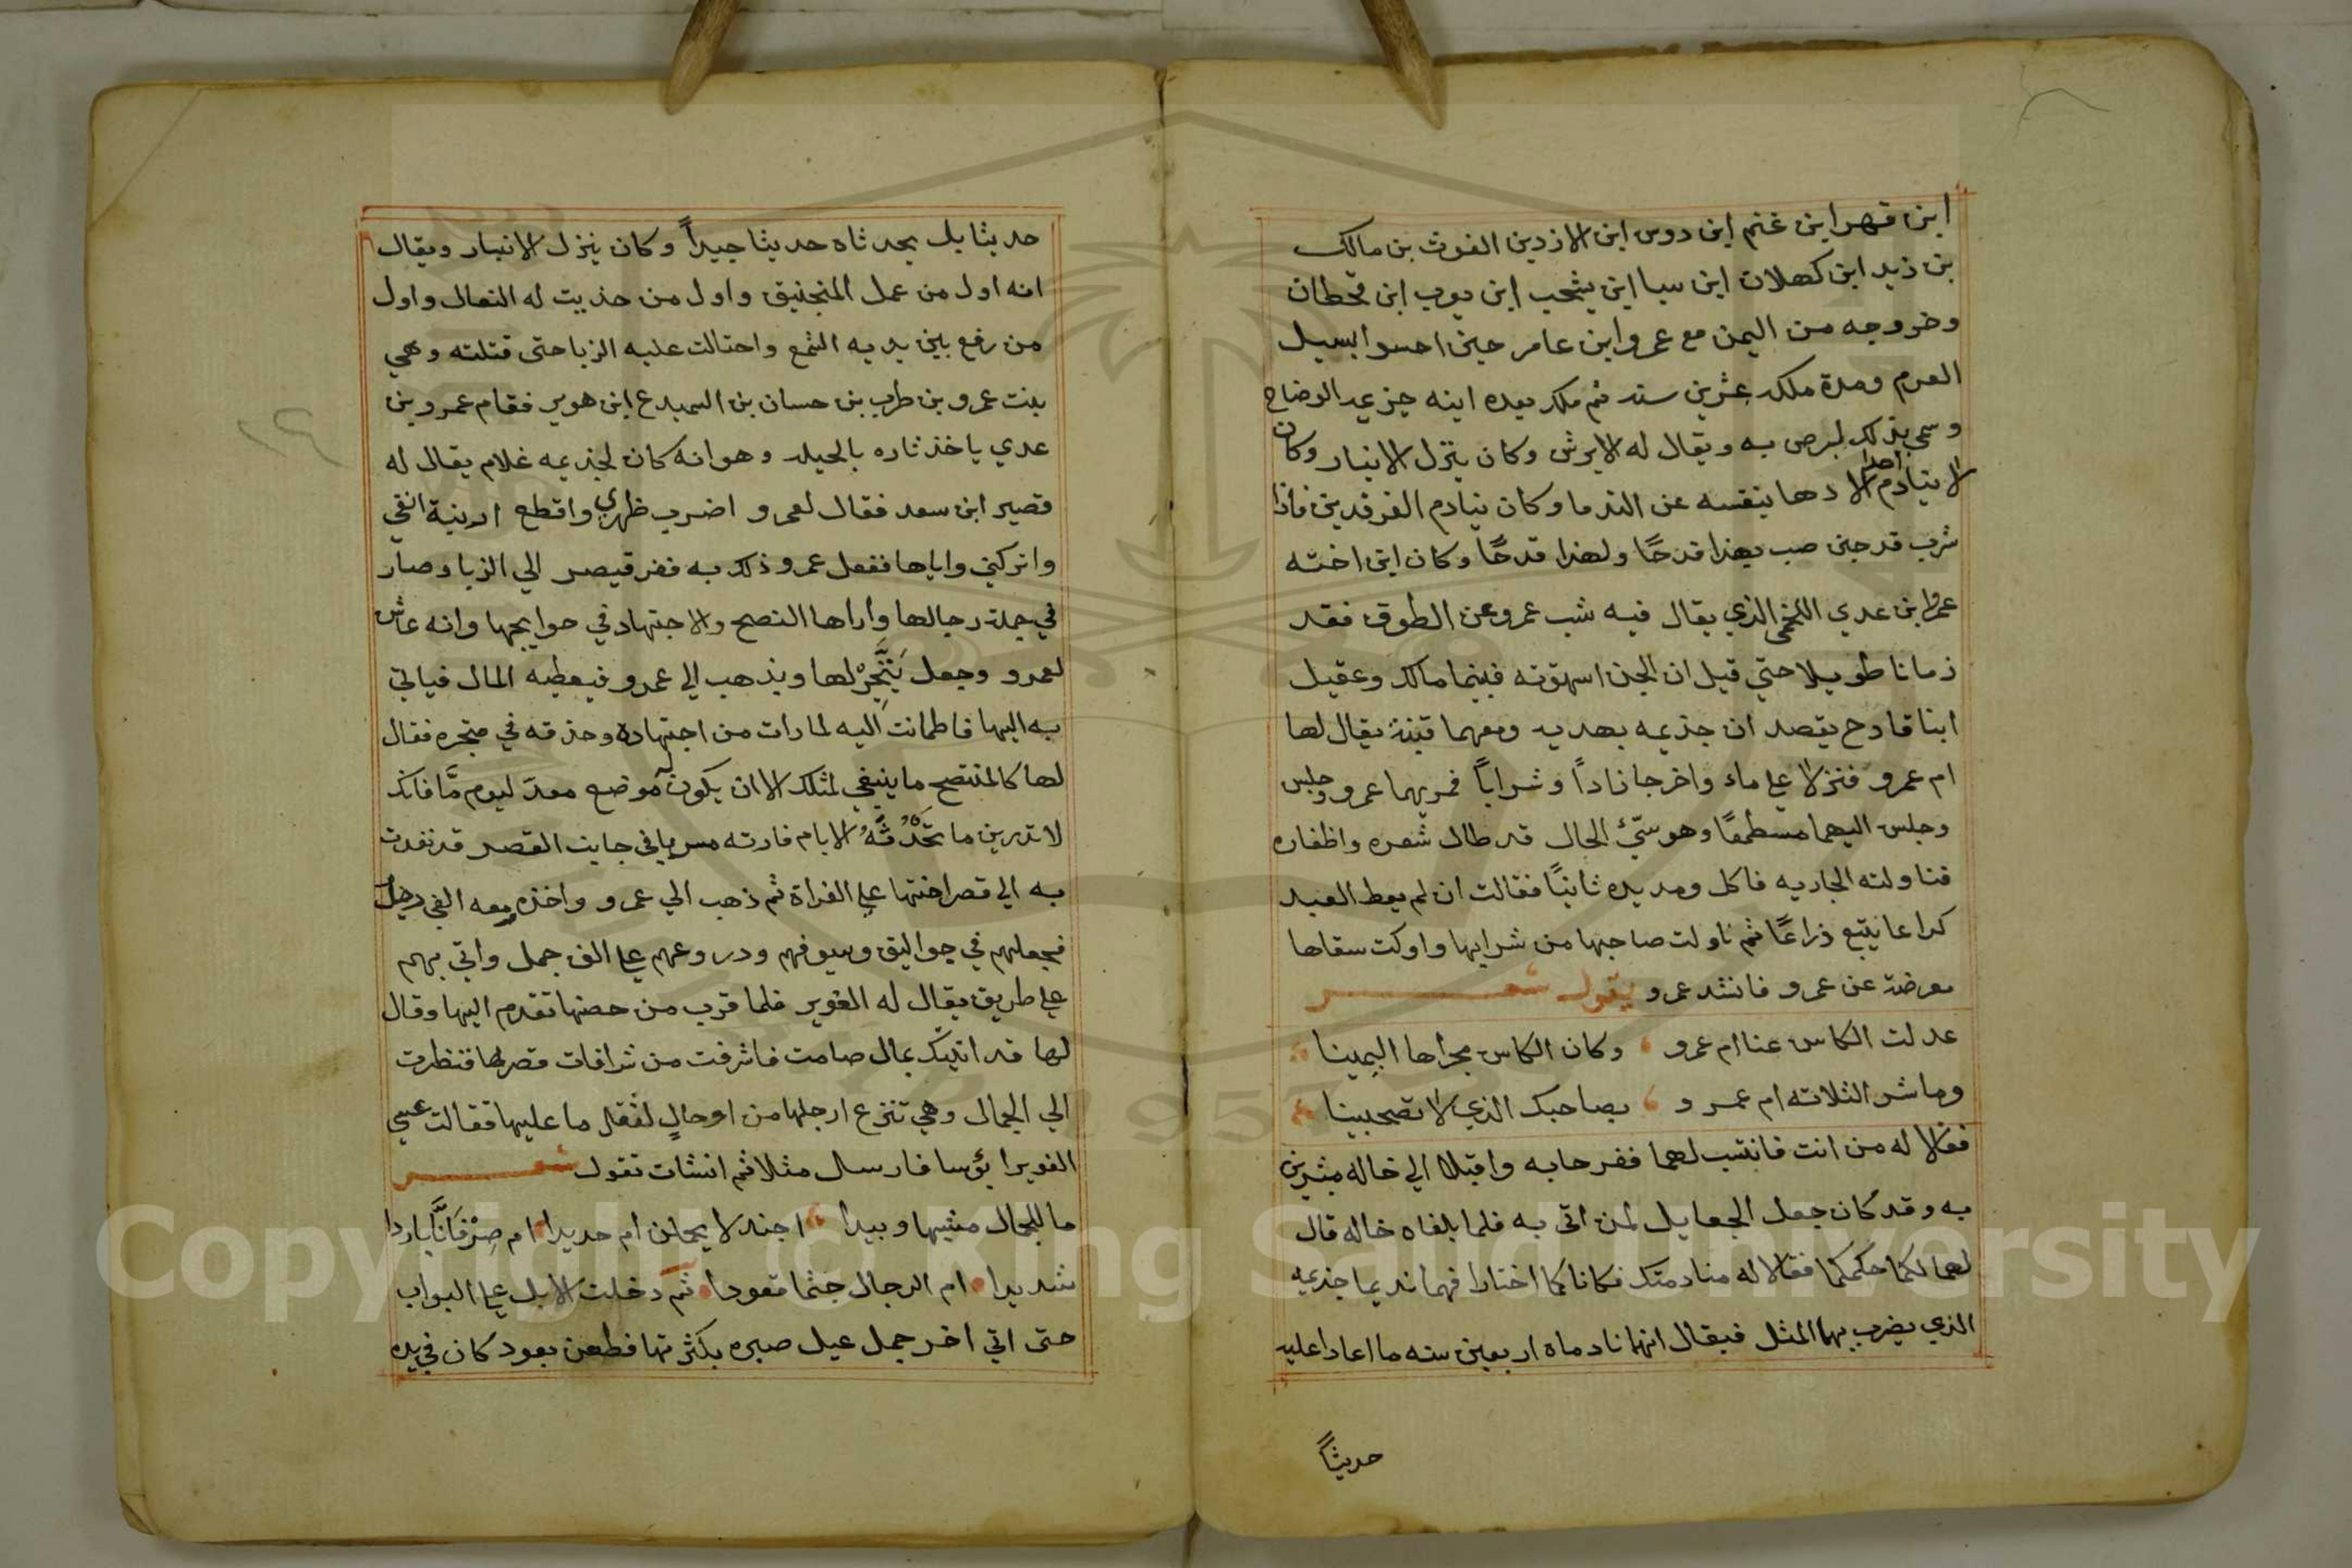 ابن فهر ابن غنم ابن دوس ابن الازدبن الغوث بن مالك
بن زيد ابن كهلان ابن سبا ابن يشجب ابن يعرب ابن قحطان
وخروجه من اليمن مع عمرو ابن عامر حين احسوا بسيل
العرم ومدة ملكه عشرين سنه ثم ملك بعده ابنه جزيمه الوضاح
وسمى بذلك لبرص به ويقال له الابرش وكان ينزل الانبار وكان
لا ينادم احدا الا دها بنفسه عن الندما وكان ينادم الفرقدين فاذا
شرب قدحين صب بهذا قدحًا ولهذا قدحًا وكان ابن اخته
عمرو ابن عدي اللخمى الذي يقال فيه شب عمرو عن الطوق فقد
زمانا طويلا حتي قيل ان الجن استهوته فبينما مالك وعقيل
ابنا قادح بقصد ان جذيمه بهديه ومعهما قينة يقال لها
ام عمرو فنزلا علي ماء واخرجا زاداً وشراباً فمر بهما عمرو وجلس
وجلس اليهما مستطمعًا وهو سيّئ الحال قد طال شعره واظفاره
فناولته الجاريه فاكل ومد يده ثانيًا فقالت ان لم يعط العبد
كراعا يتبع ذراعًا ثم ناولت صاحبها من شرابها واوكت سقاها
معرضة عن عمرو فانشد عمرو يقول شعر
عدلت الكاس عنا ام عمرو وكان الكاس مجراها اليمينا
وما شر الثلاثه ام عمرو بصاحبك الذي لا تصحبينا
فقالا له من انت فانتسب لهما ففرحا به واقبلا الي خاله مبشرين
به وقد كان جعل الجعايل لمن اتى به فلما بلغاه خاله قال
لهما لكما حكمكما فقالا له منادمتك فكانا كما اختارا فهما نديما جذيمه
الذي يضرب بهما المثل فيقال انهما نادماه اربعين سنه ما اعادا عليه
حديثاً
حديثا بل يحدثاه حديثا جيداً وكان ينزل الانبار ويقال
انه اول من عمل المنجنيق واول من حذيت له النعال واول
من رفع بين يديه الشمع واحتالت عليه الزبا حتى قتلته وهي
بنت عمرو بن طرب بن حسان بن السميدع ابن هوبر فقام عمرو بن
عدي ياخذ ثاره بالحيله وهو انه كان لجذيمه غلام يقال له
قصير ابن سعد فقال لعمرو اضرب ظهري واقطع ارنبة انفي
واتركني واياها ففعل عمرو ذلك به ففر قيصر الي الزبا وصار
في جملة رجالها وأراها النصح والاجتهاد في حوايجها وانه عاش
لعمرو وجعل يَتَّجِرْ لها ويذهب الي عمرو فيعطيه المال فياتي
به اليها فاطمانت اليه لما رات من اجتهاده وحذقه في متجره فقال
لها كالمنتصح ما ينبغي لمثلك الا ان يكون له موضع معدّ ليوم مَّا فانك
لا تدرين ما تحَدُثُهُ الايام فارته سربا في جانب القصر قد نفدت
به الي قصر اختها علي الفراة ثم ذهب الي عمرو واخذ معه الفي رجل
فجعلهم في جواليق وسيوفهم ودروعهم علي الف جمل واتي بهم
علي طريق يقال له الغوير فلما قرب من حصنها تقدم اليها وقال
لها قد اتيتك بمال صامت فاشرفت من شرافات قصرها فنظرت
الي الجمال وهي تنزع ارجلها من اوحالٍ لثقل ما عليها فقالت عسى
الغوير ابؤسا فارسال مثلا ثم انشات تقول شعر
ما للجمال مشيها وبيدا اجندلا يحملن ام حديدا ام صِرْفَانًا باردا
شديدا ام الرجال جثما قعودا ثم دخلت الابل علي البواب
حتى اتي اخر جمل عيل صبره بكثرتها فطعن بعود كان في يده
Copyright © King Saud University